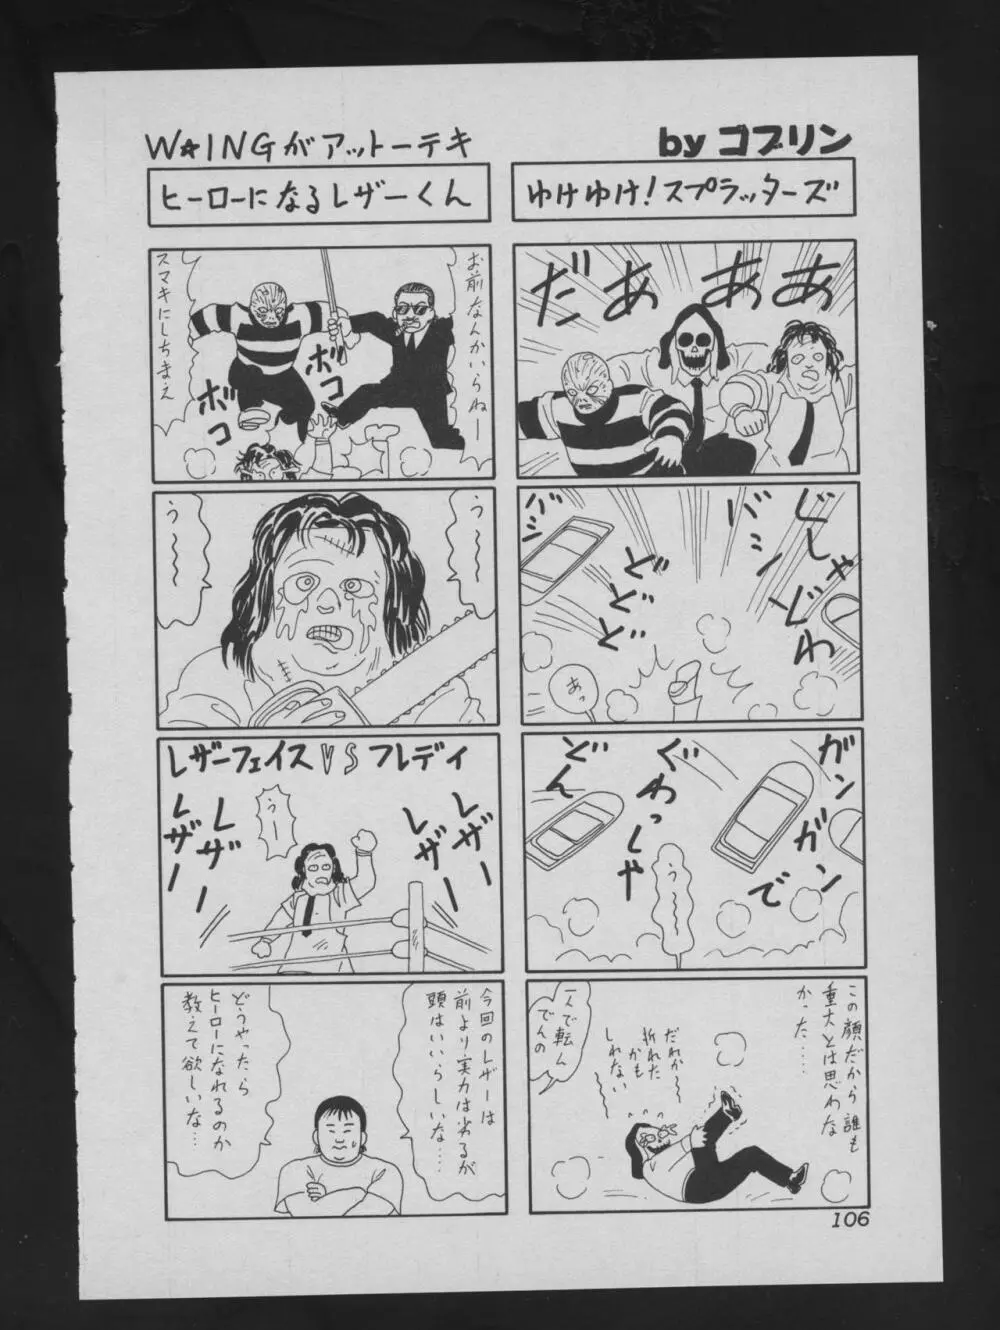 W★INGがアットーテキ
by ゴブリン
ゆけゆけ!スプラッターズ
だぁああ
どしゃ
どわ
バシ
バシ
どどど
あっ
ガンガン
で
ぐわっしゃ
どん
う〜〜〜
この顔だから誰も
重大とは思わな
かった……
だれか〜
折れた
かも
しれない
一人で転ん
でんの
ヒーローになるレザーくん
お前なんかいらねー
スマキにしちまえ
ボコ
ボコ
う〜〜〜
う〜〜〜
レザーフェイスVSフレディ
レザー
レザー
うー
レザー
レザー
今回のレザーは
前より実力は劣るが
頭はいいらしいな……
どうやったら
ヒーローになれるのか
教えて欲しいな…
106